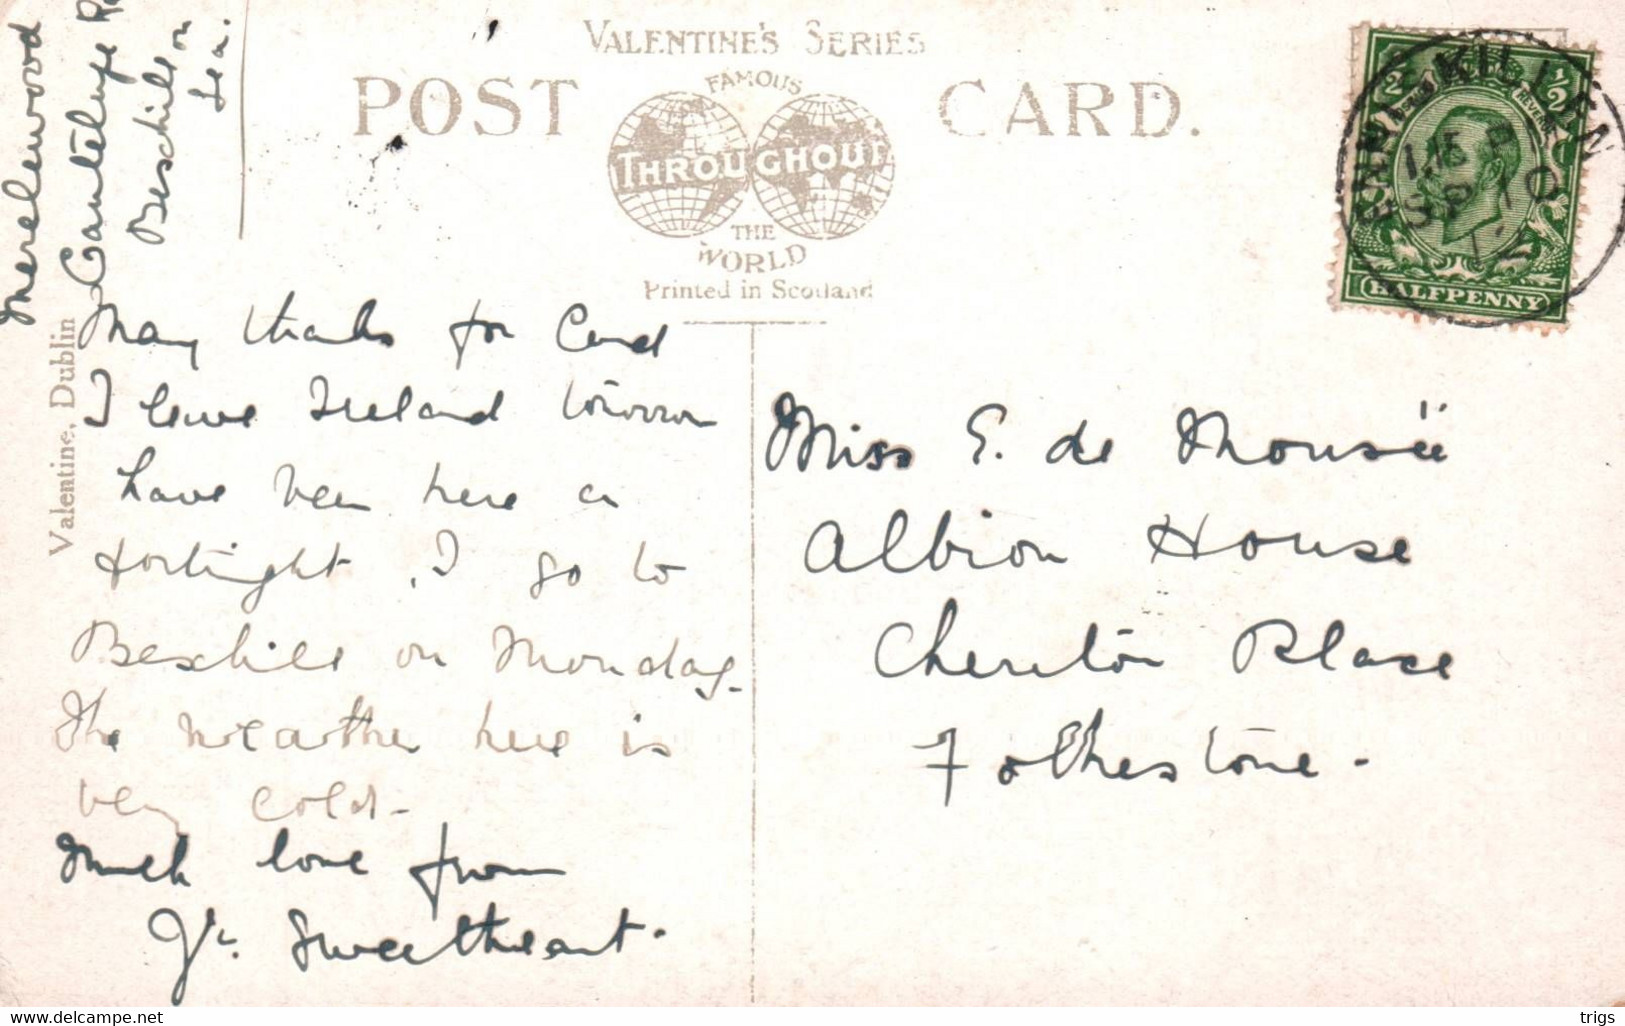 VALENTINE'S SERIES
POST CARD.
FAMOUS
THROUGHOUT
THE
WORLD
Printed in Scotland
Valentine, Dublin
Merelewood
Cantelupe Rd
Bexhill on
Sea.
Many thanks for Card
I leave Ireland tomorrow
have been here a
fortnight. I go to
Bexhill on Monday.
The weather here is
very cold-
Much love from
Yr. Sweetheart.
Miss E. de
Albion House
Cheriton Place
Folkestone.
ENNISKILLEN
SP 10
12
HALFPENNY
delcampe.net
trigs